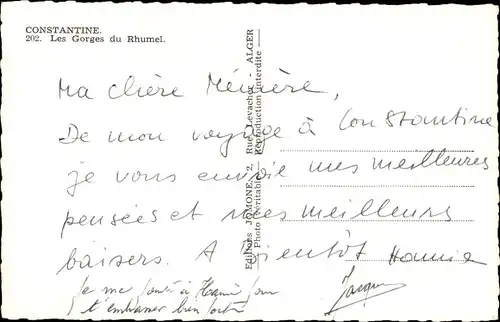 CONSTANTINE.
202. Les Gorges du Rhumel.
Ma chère Mémère,
De mon voyage à Constantine
je vous envoie mes meilleures
pensées et mes meilleurs
baisers. A Bientôt
Je me joins à pour
t'embrasser bien fort
Jacques
Editions JOMONE, 2, Rue Levacher - ALGER
Photo véritable Reproduction interdite